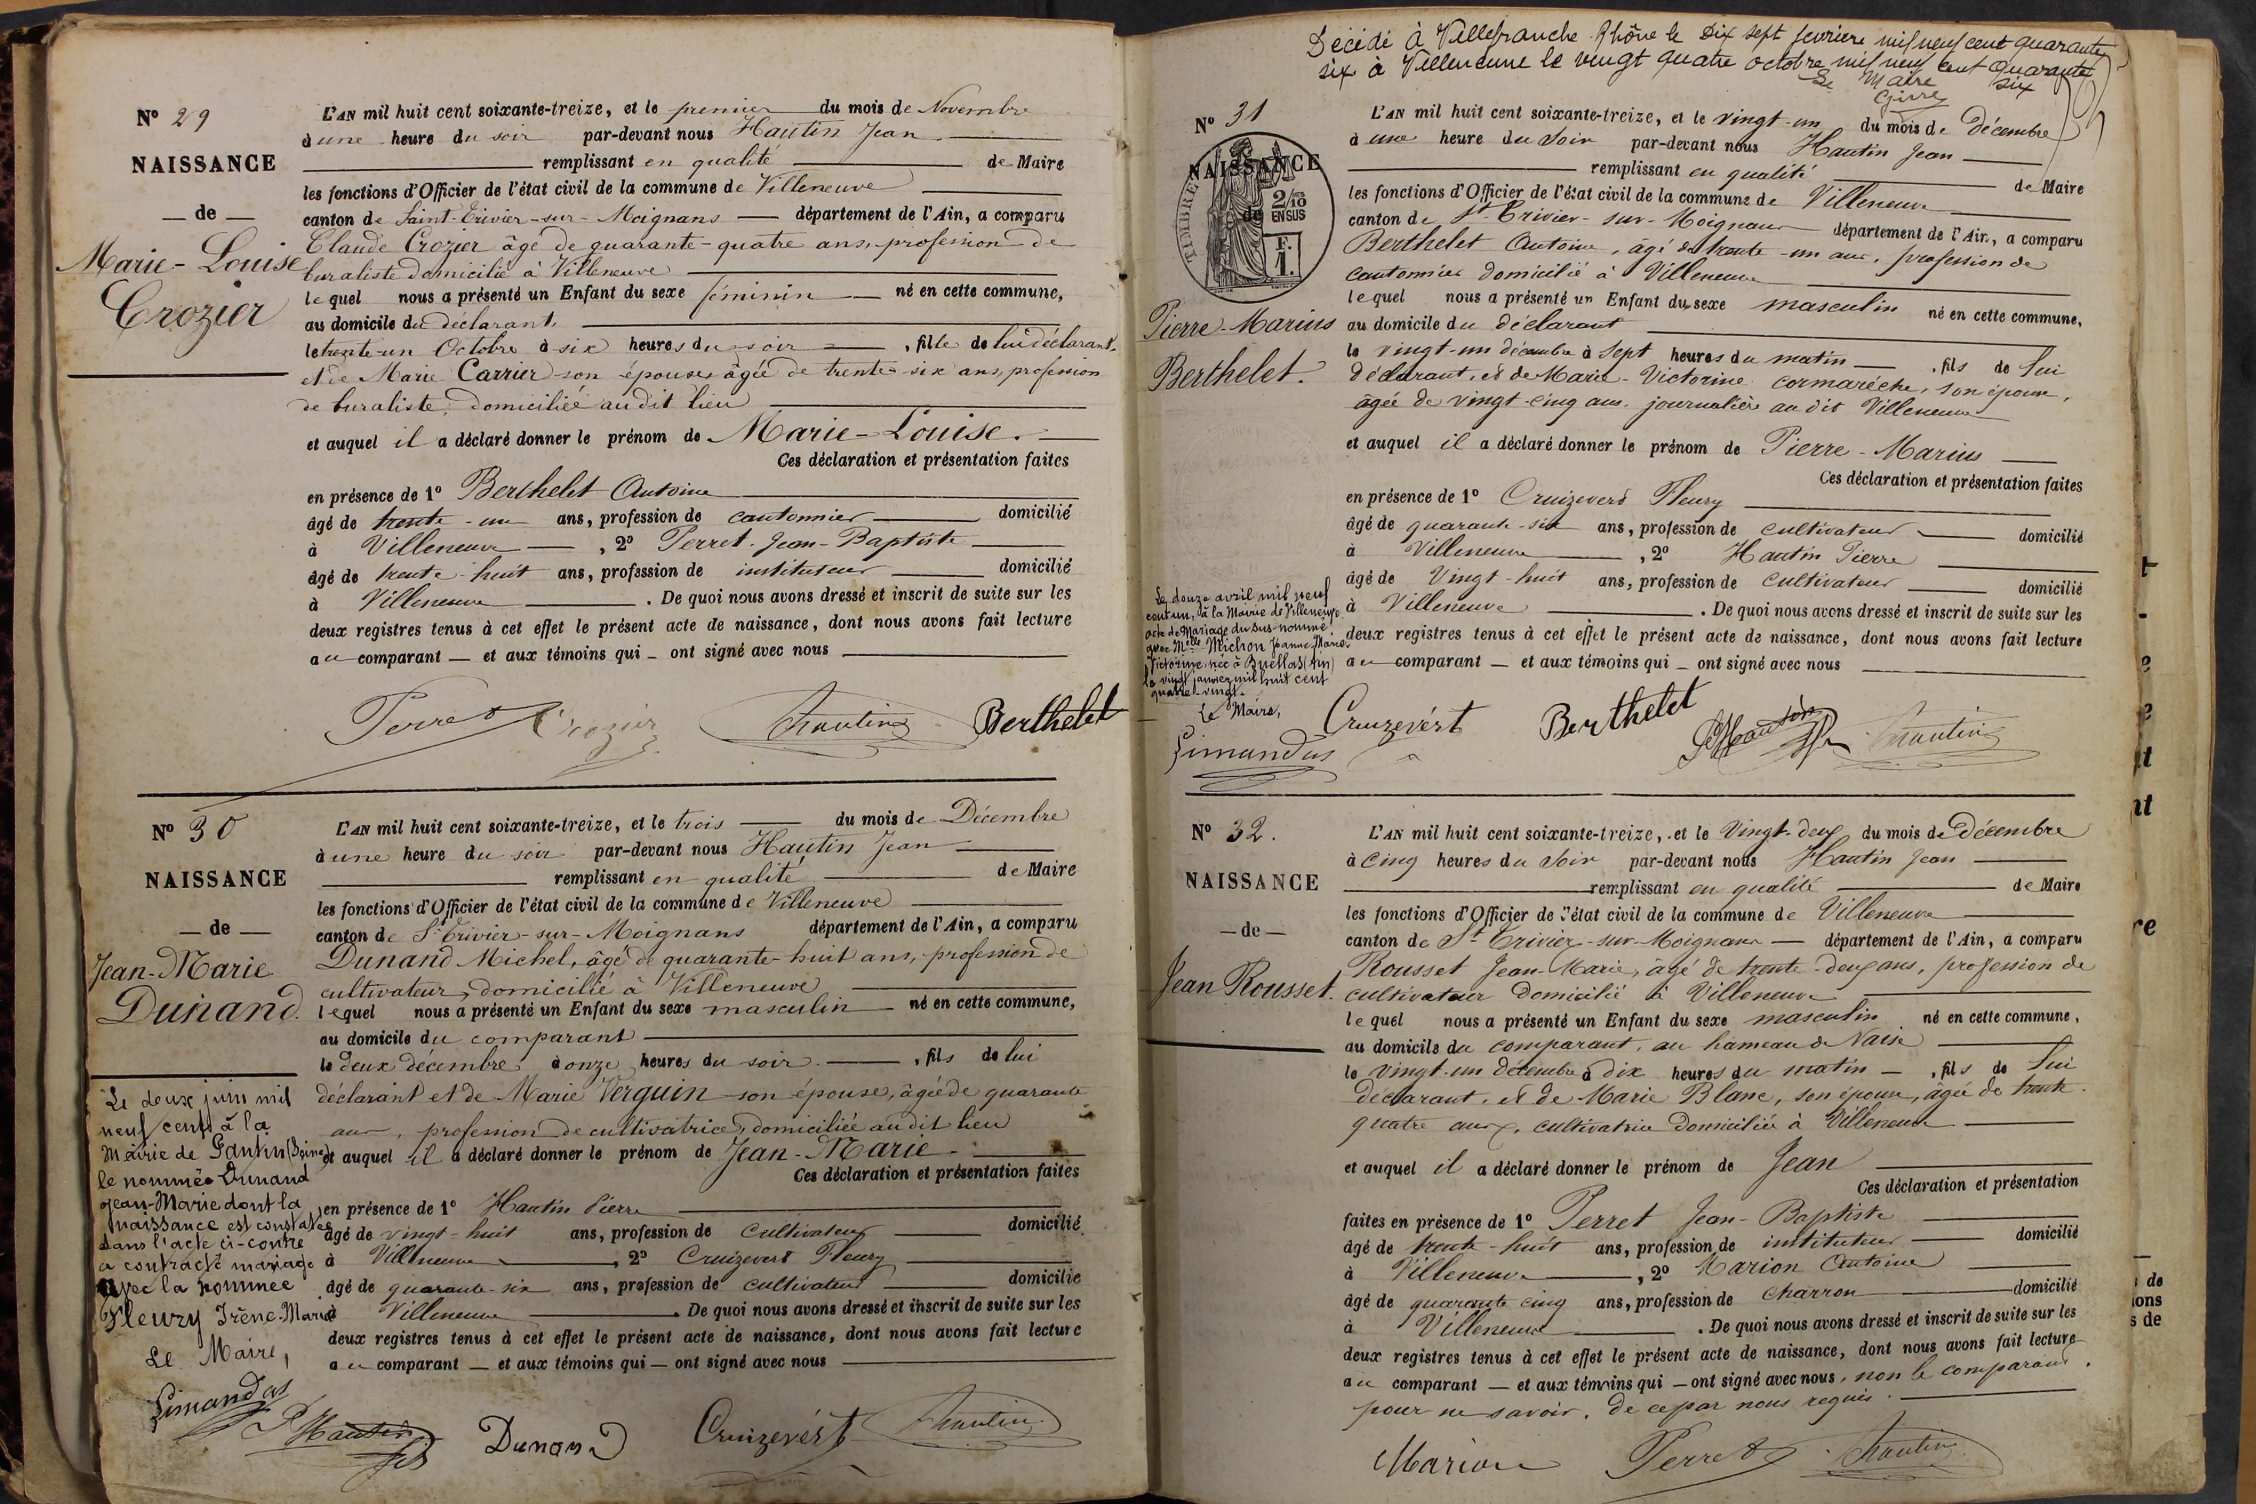 N° 29
NAISSANCE
— de —
Marie-Louise
Crozier
L'AN mil huit cent soixante-treize, et le premier du mois de Novembre
à une heure du soir par-devant nous Hautin Jean
remplissant en qualité de Maire
les fonctions d'Officier de l'état civil de la commune de Villeneuve
canton de Saint-Trivier-sur-Moignans département de l'Ain, a comparu
Claude Crozier âgé de quarante-quatre ans, profession de
buraliste domicilié à Villeneuve
lequel nous a présenté un Enfant du sexe féminin né en cette commune,
au domicile du déclarant
le trente-un Octobre à six heures du soir, fille de lui déclarant
et de Marie Carrier son épouse âgée de trente-six ans, profession
de buraliste, domiciliée au dit lieu
et auquel il a déclaré donner le prénom de Marie-Louise.
Ces déclaration et présentation faites
en présence de 1° Berthelet Antoine
âgé de trente-un ans, profession de cantonnier domicilié
à Villeneuve, 2° Perret Jean-Baptiste
âgé de trente-huit ans, profession de instituteur domicilié
à Villeneuve. De quoi nous avons dressé et inscrit de suite sur les
deux registres tenus à cet effet le présent acte de naissance, dont nous avons fait lecture
au comparant — et aux témoins qui — ont signé avec nous
Perret Crozier Hautin Berthelet
N° 30
NAISSANCE
— de —
Jean-Marie
Dunand.
L'AN mil huit cent soixante-treize, et le trois du mois de Décembre
à une heure du soir par-devant nous Hautin Jean
remplissant en qualité de Maire
les fonctions d'Officier de l'état civil de la commune de Villeneuve
canton de St Trivier-sur-Moignans département de l'Ain, a comparu
Dunand Michel, âgé de quarante-huit ans, profession de
cultivateur, domicilié à Villeneuve
lequel nous a présenté un Enfant du sexe masculin né en cette commune,
au domicile du comparant
le deux décembre à onze heures du soir, fils de lui
déclarant et de Marie Verguin son épouse, âgée de quarante
ans, profession de cultivatrice, domiciliée au dit lieu
et auquel il a déclaré donner le prénom de Jean-Marie
Ces déclaration et présentation faites
en présence de 1° Hautin Pierre
âgé de vingt-huit ans, profession de cultivateur domicilié
à Villeneuve, 2° Cruizevert Fleury
âgé de quarante-six ans, profession de cultivateur domicilié
à Villeneuve. De quoi nous avons dressé et inscrit de suite sur les
deux registres tenus à cet effet le présent acte de naissance, dont nous avons fait lecture
au comparant — et aux témoins qui — ont signé avec nous
Le deux juin mil
neuf cent à la
Mairie de Pantin (Seine)
le nommé Dunand
Jean-Marie dont la
naissance est constatée
dans l'acte ci-contre
a contracté mariage
avec la nommée
Fleury Irène-Marie
Le Maire,
Limandas
P Hautin fils Dunand Cruizevért Hautin
Décédé à Villefranche Rhône le Dix sept fevriere mil neuf cent quarante
six à Villeneuve le vingt quatre octobre mil neuf cent quarante
six
Le Maire
N° 31
NAISSANCE
de
TIMBRE
2/10
EN SUS
F.
1.
Pierre-Marius
Berthelet.
L'AN mil huit cent soixante-treize, et le vingt-un du mois de Décembre
à une heure du Soir par-devant nous Hautin Jean
remplissant en qualité de Maire
les fonctions d'Officier de l'état civil de la commune de Villeneuve
canton de St Trivier-sur-Moignans département de l'Ain, a comparu
Berthelet Antoine, âgé de trente-un ans, profession de
cantonnier domicilié à Villeneuve
lequel nous a présenté un Enfant du sexe masculin né en cette commune,
au domicile du déclarant
le vingt-un décembre à sept heures du matin, fils de lui
déclarant, et de Marie-Victorine Cormarèche, son épouse,
âgée de vingt-cinq ans, journalière au dit Villeneuve
et auquel il a déclaré donner le prénom de Pierre-Marius
Ces déclaration et présentation faites
en présence de 1° Cruizevert Fleury
âgé de quarante-six ans, profession de cultivateur domicilié
à Villeneuve, 2° Hautin Pierre
âgé de Vingt-huit ans, profession de cultivateur domicilié
à Villeneuve. De quoi nous avons dressé et inscrit de suite sur les
deux registres tenus à cet effet le présent acte de naissance, dont nous avons fait lecture
au comparant — et aux témoins qui — ont signé avec nous
Le douze avril mil neuf
cent un, à la Mairie de Villeneuve
acte de Mariage du sus-nommé
avec Melle Michon Jeanne Marie
Victorine, née à Buellas (Ain)
le vingt janvier mil huit cent
quatre-vingt.
Le Maire,
Limandas
Cruizevért Berthelet P Hautin fils Hautin
N° 32.
NAISSANCE
— de —
Jean Rousset.
L'AN mil huit cent soixante-treize, et le Vingt-deux du mois de décembre
à cinq heures du Soir par-devant nous Hautin Jean
remplissant en qualité de Maire
les fonctions d'Officier de l'état civil de la commune de Villeneuve
canton de St Trivier-sur-Moignans — département de l'Ain, a comparu
Rousset Jean-Marie, âgé de trente-deux ans, profession de
cultivateur domicilié à Villeneuve
lequel nous a présenté un Enfant du sexe masculin né en cette commune,
au domicile du comparant, au hameau de Naise
le vingt-un décembre à dix heures du matin —, fils de lui
déclarant, et de Marie Blanc, son épouse, âgée de trente
quatre ans, cultivatrice domiciliée à Villeneuve
et auquel il a déclaré donner le prénom de Jean
Ces déclaration et présentation
faites en présence de 1° Perret Jean-Baptiste
âgé de trente-huit ans, profession de instituteur domicilié
à Villeneuve, 2° Marion Antoine
âgé de quarante cinq ans, profession de charron domicilié
à Villeneuve. De quoi nous avons dressé et inscrit de suite sur les
deux registres tenus à cet effet le présent acte de naissance, dont nous avons fait lecture
au comparant — et aux témoins qui — ont signé avec nous, non le comparant,
pour ne savoir, de ce par nous requis.
Marion Perret Hautin